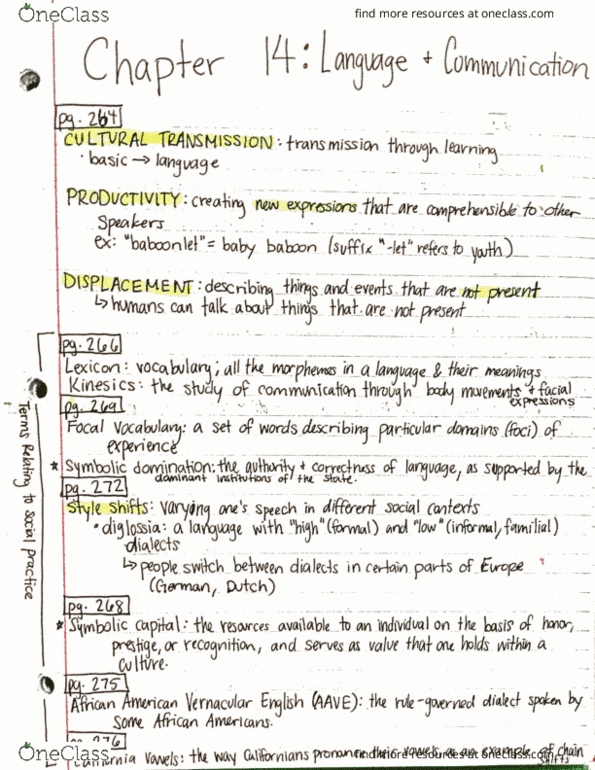 OneClass
find more resources at oneclass.com
Chapter 14: Language + Communication
pg. 264
CULTURAL TRANSMISSION: transmission through learning
· basic → language
PRODUCTIVITY: creating new expressions that are comprehensible to other
speakers
ex: "baboonlet" = baby baboon (suffix "-let" refers to youth)
DISPLACEMENT: describing things and events that are not present
↳ humans can talk about things that are not present
pg. 266
Lexicon: vocabulary; all the morphemes in a language & their meanings
Kinesics: the study of communication through body movements + facial
expressions
pg. 269
Focal Vocabulary: a set of words describing particular domains (foci) of
experience
* Symbolic domination: the authority + correctness of language, as supported by the
dominant institutions of the state.
pg. 272
Style Shifts: varying one's speech in different social contexts
• diglossia: a language with "high" (formal) and "low" (informal, familial)
dialects
↳ people switch between dialects in certain parts of Europe
(German, Dutch)
Terms Relating to social practice
pg. 268
* Symbolic capital: the resources available to an individual on the basis of honor,
prestige, or recognition, and serves as value that one holds within a
culture.
pg. 275
African American Vernacular English (AAVE): the rule-governed dialect spoken by
some African Americans.
pg. 276
California vowels: the way Californians pronounce their vowels as an example of chain
shifts
OneClass
find more resources at oneclass.com